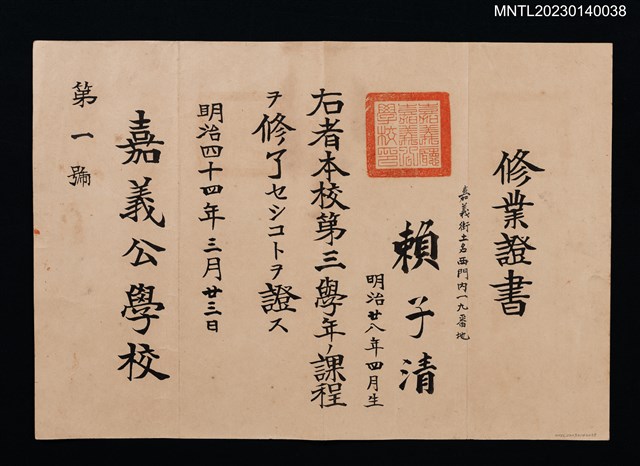 MNTL20230140038
修業證書
嘉義街土名西門內一九番地
賴子清
明治廿八年四月生
嘉義廳
嘉義公
學校印
右者本校第三學年ノ課程
ヲ修了セシコトヲ證ス
明治四十四年三月廿三日
嘉義公學校
第一號